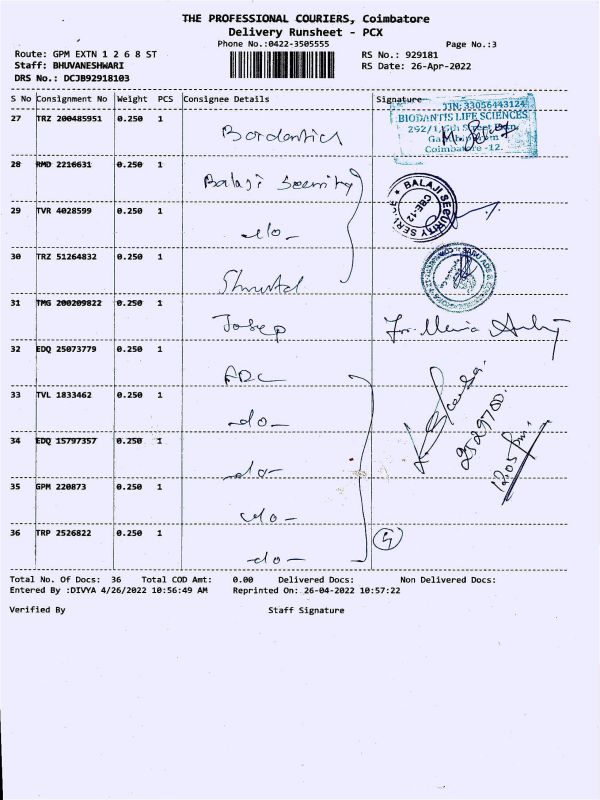 THE PROFESSIONAL COURIERS, Coimbatore
Delivery Runsheet - PCX
Phone No.:0422-3505555
Page No.:3
Route: GPM EXTN 1 2 6 8 ST
RS No.: 929181
Staff: BHUVANESHWARI
RS Date: 26-Apr-2022
DRS No.: DCJB92918103
S No Consignment No Weight PCS Consignee Details Signature
TIN: 33056443124
27 TRZ 200485951 0.250 1
BIODANTIS LIFE SCIENCES
Coimbatore -12.
28 RMD 2216631 0.250 1 Balaji Security
BALAJI SECURITY SERVICE
CBE-12
29 TVR 4028599 0.250 1 -do-
30 TRZ 51264832 0.250 1
31 TMG 200209822 0.250 1 Josep
32 EDQ 25073779 0.250 1 ADC
33 TVL 1833462 0.250 1 -do-
2529780.
12.05 pm
34 EDQ 15797357 0.250 1 -do-
35 GPM 220873 0.250 1 -do-
36 TRP 2526822 0.250 1 -do-
Total No. Of Docs: 36 Total COD Amt: 0.00 Delivered Docs: Non Delivered Docs:
Entered By :DIVYA 4/26/2022 10:56:49 AM Reprinted On: 26-04-2022 10:57:22
Verified By Staff Signature